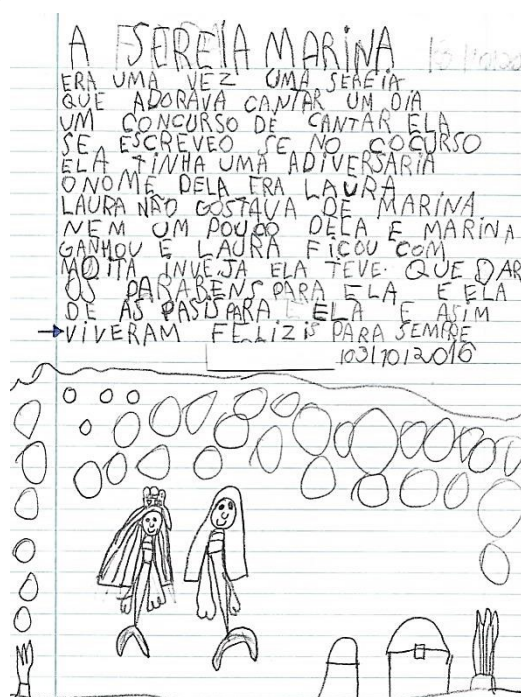 A SEREIA MARINA
ERA UMA VEZ UMA SEREIA
QUE ADORAVA CANTAR UM DIA
UM CONCURSO DE CANTAR ELA
SE ESCREVEO SE NO COCURSO
ELA TINHA UMA ADIVERSARIA
O NOME DELA ERA LAURA
LAURA NÃO GOSTAVA DE MARINA
NEM UM POUCO DELA E MARINA
GANHOU E LAURA FICOU COM
MOITA INVEJA ELA TEVE QUE DAR
OS PARABENS PARA ELA E ELA
DE AS PASIS PARA ELA E ASIM
VIVERAM FELIZIS PARA SEMPRE
10311012016